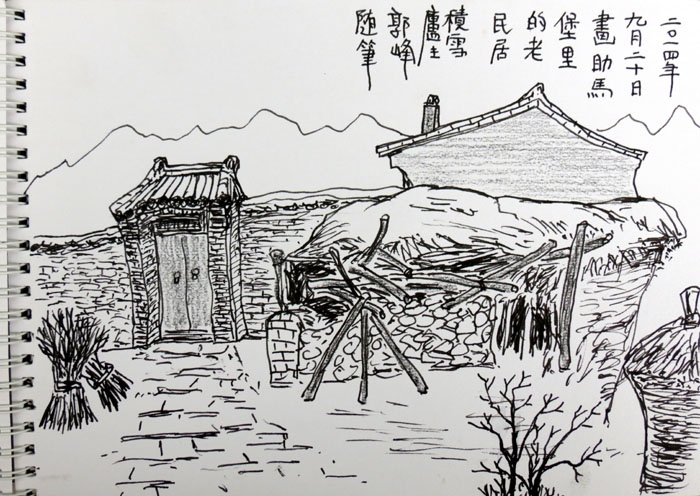 二〇一四年
九月二十日
畫助馬
堡里
的老
民居
積雪
廬主
郭峰
随筆